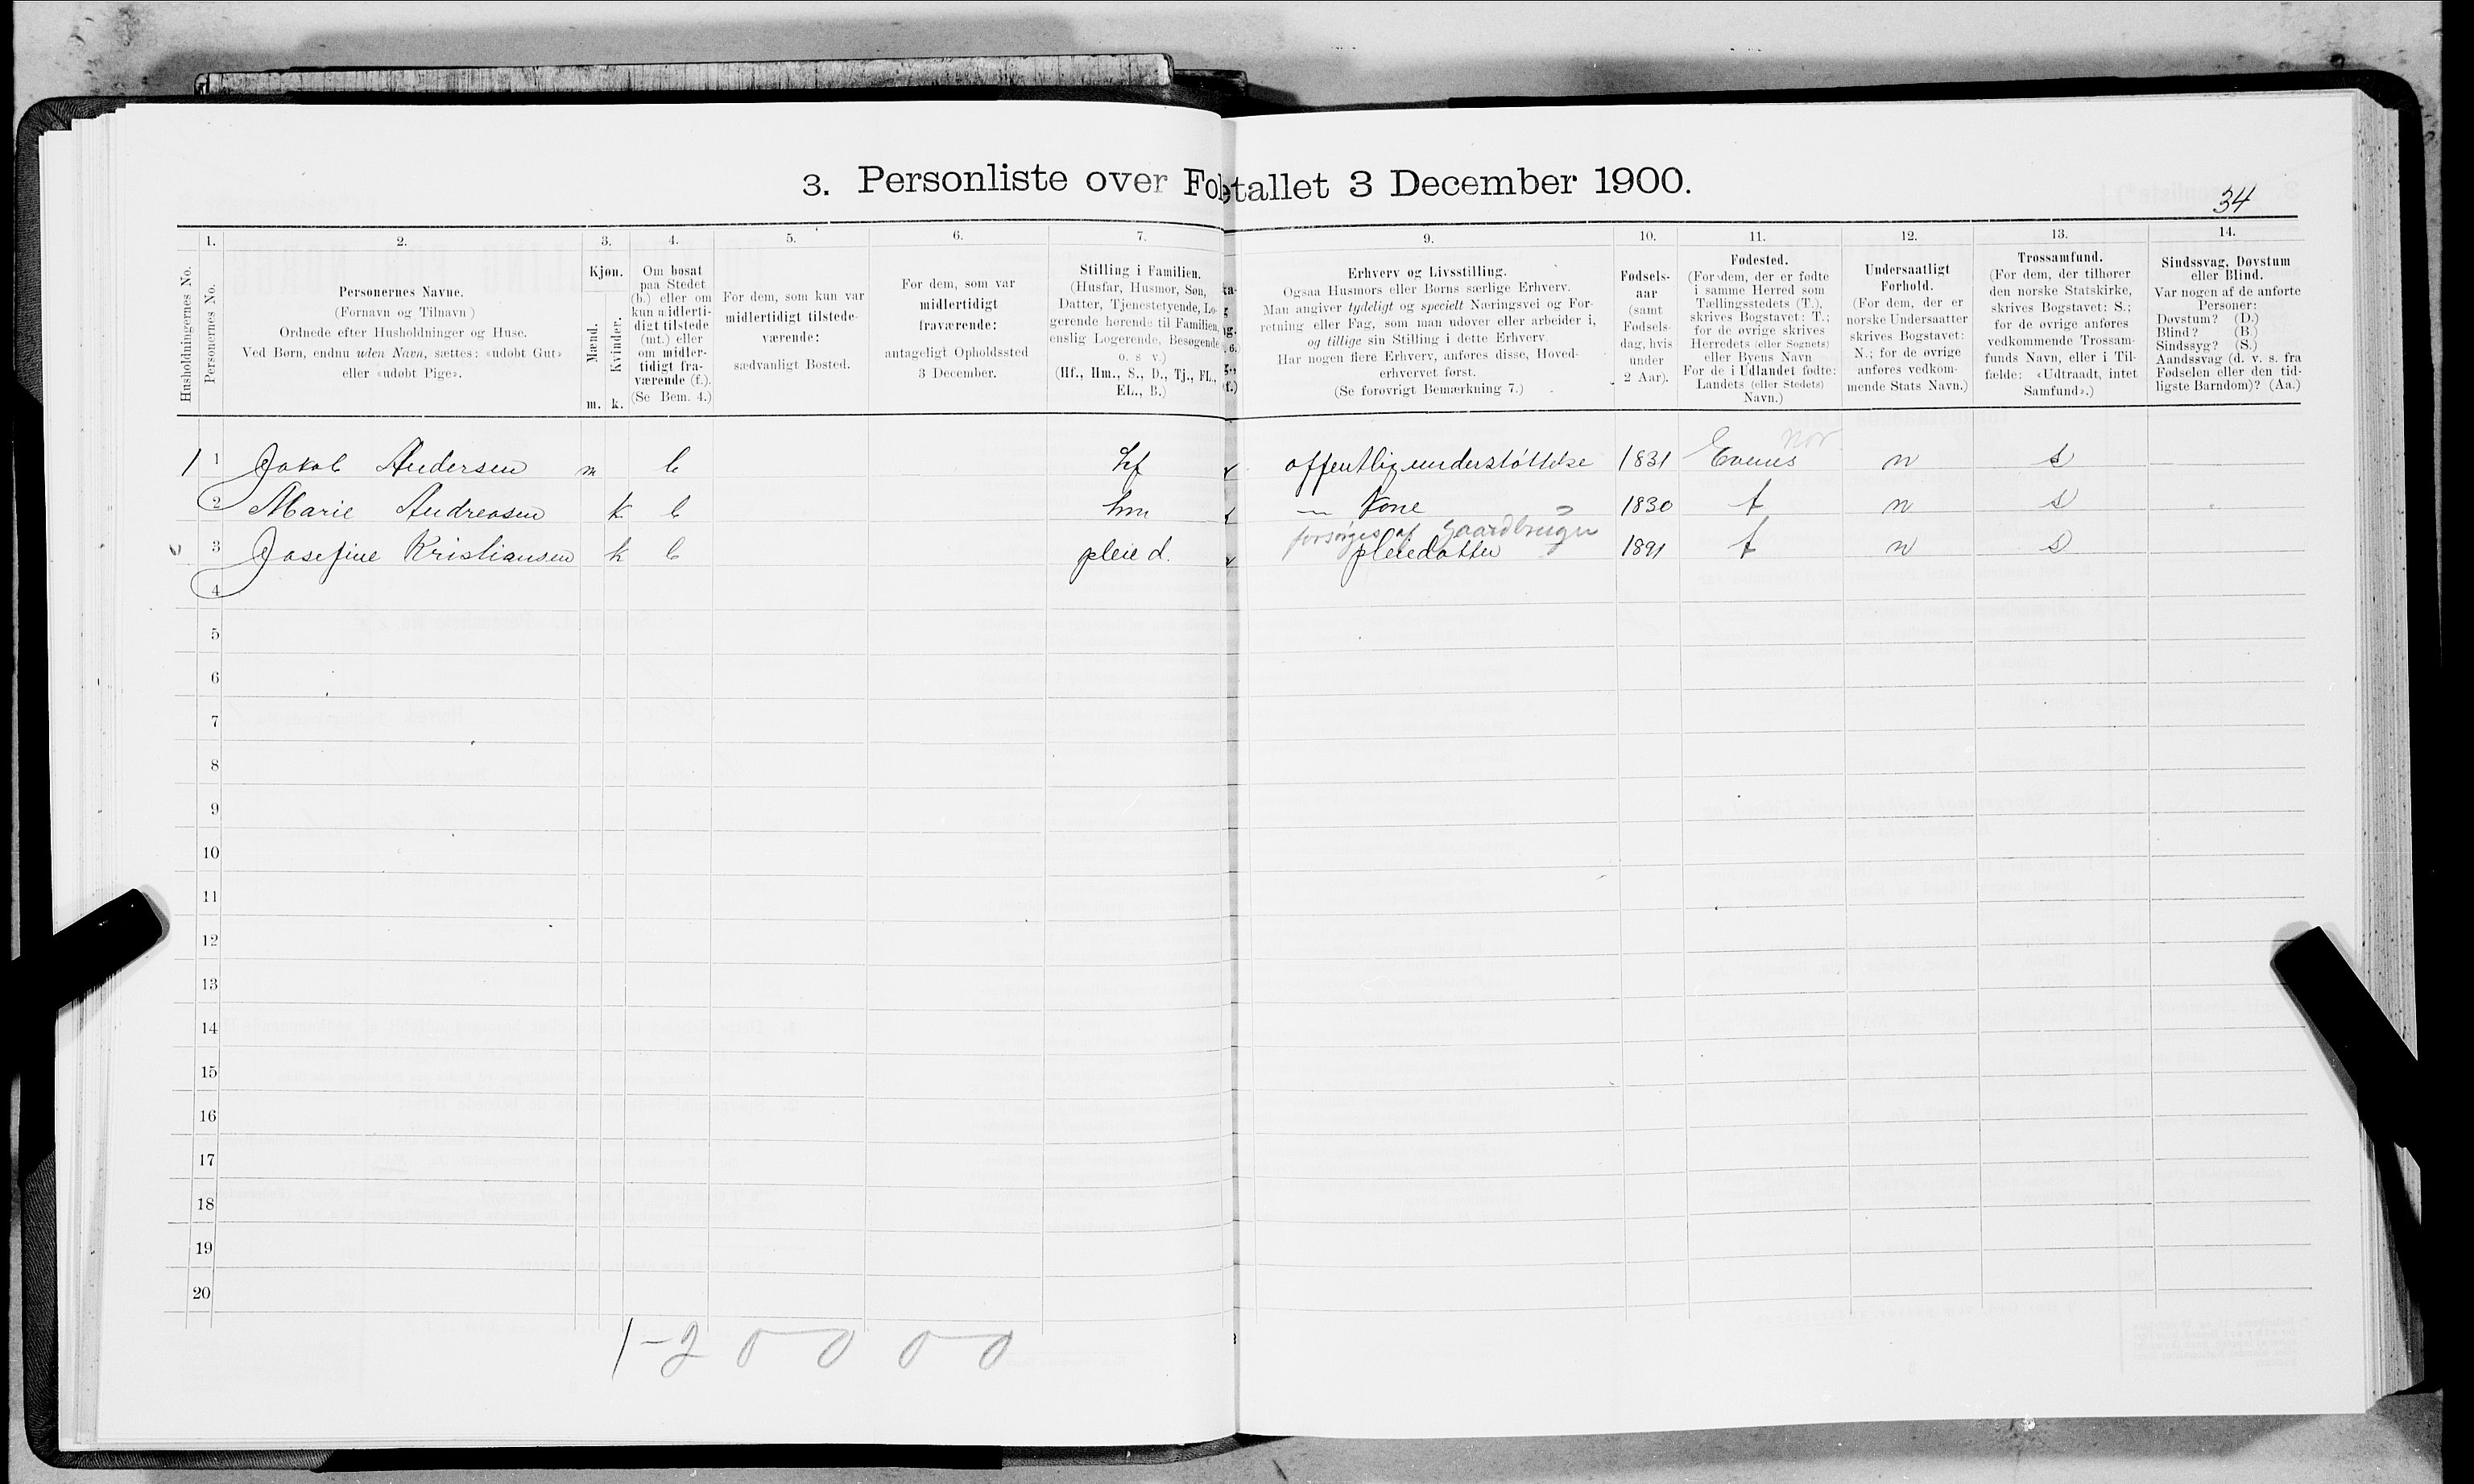 3. Personliste over Folketallet 3 December 1900.
34
1. 2. 3. 4. 5. 6. 7. 9. 10. 11. 12. 13. 14.
Husholdningernes No.
Personernes No.
Personernes Navne.
(Fornavn og Tilnavn)
Ordnede efter Husholdninger og Huse.
Ved Børn, endnu uden Navn, sættes: «udøbt Gut»
eller «udøbt Pige».
Kjøn.
Mænd.
Kvinder.
m. k.
Om bosat
paa Stedet
(b.) eller om
kun midlerti-
digt tilstede
(mt.) eller
om midler-
tidigt fra-
værende (f.).
(Se Bem. 4.)
For dem, som kun var
midlertidigt tilstede-
værende:
sædvanligt Bosted.
For dem, som var
midlertidigt
fraværende:
antageligt Opholdssted
3 December.
Stilling i Familien.
(Husfar, Husmor, Søn,
Datter, Tjenestetyende, Lo-
gerende hørende til Familien,
enslig Logerende, Besøgende
o. s v.)
(Hf., Hm., S., D., Tj., FL.,
EL., B.)
Erhverv og Livsstilling.
Ogsaa Husmors eller Børns særlige Erhverv.
Man angiver tydeligt og specielt Næringsvei og For-
retning eller Fag, som man udøver eller arbeider i,
og tillige sin Stilling i dette Erhverv.
Har nogen flere Erhverv, anføres disse, Hoved-
erhvervet først.
(Se forøvrigt Bemærkning 7.)
Fødsels-
aar
(samt
Fødsels-
dag, hvis
under
2 Aar).
Fødested.
(For dem, der er fødte
i samme Herred som
Tællingsstedets (T.),
skrives Bogstavet: T.;
for de øvrige skrives
Herredets (eller Sognets)
eller Byens Navn
For de i Udlandet fødte:
Landets (eller Stedets)
Navn.)
Undersaatligt
Forhold.
(For dem, der er
norske Undersaatter
skrives Bogstavet:
N.; for de øvrige
anføres vedkom-
mende Stats Navn.)
Trossamfund.
(For dem, der tilhører
den norske Statskirke,
skrives Bogstavet: S.;
for de øvrige anføres
vedkommende Trossam-
funds Navn, eller i Til-
fælde: «Udtraadt, intet
Samfund».)
Sindssvag, Døvstum
eller Blind.
Var nogen af de anførte
Personer:
Døvstum? (D.)
Blind? (B.)
Sindssyg? (S.)
Aandssvag (d. v. s. fra
Fødselen eller den tid-
ligste Barndom)? (Aa.)
1 1 Jakob Andersen m b hf offentlig understøttelse 1831 Evenes nor n s
2 Marie Andreasen k b hm — Kone 1830 t n s
forsørges af Gaardbruger
3 Josefine Kristiansen k b pleie d. pleiedatter 1891 t n s
4
5
6
7
8
9
10
11
12
13
14
15
16
17
18
19
20
1 - 2 0 0 0 0